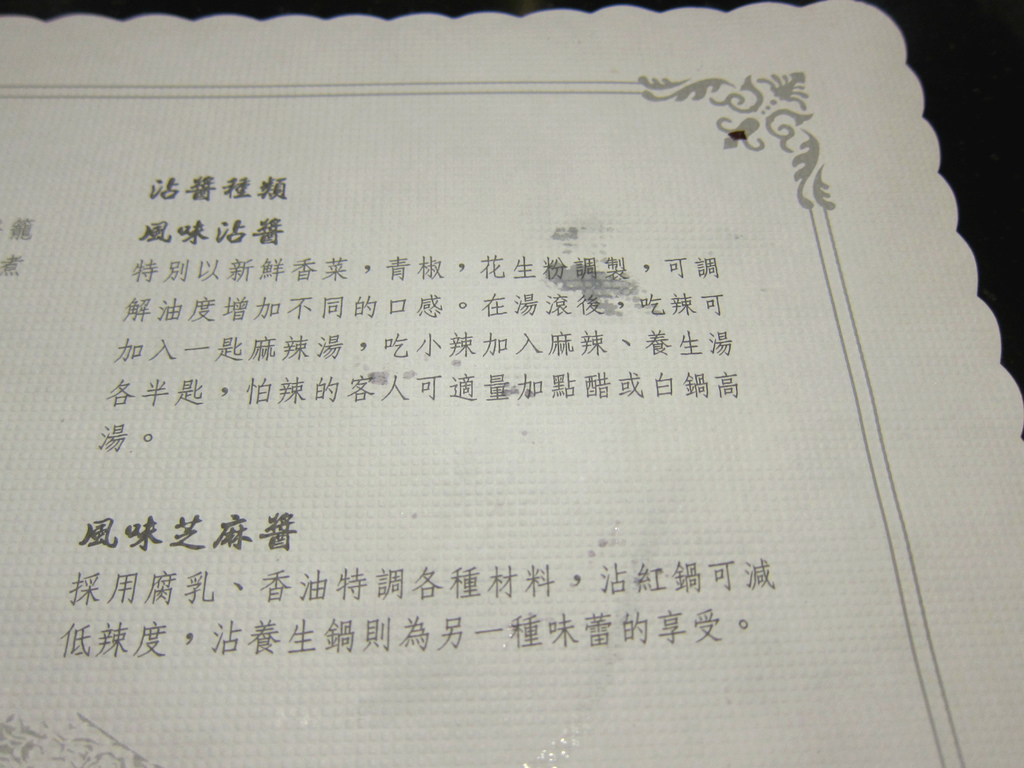 沾醬種類
風味沾醬
特別以新鮮香菜，青椒，花生粉調製，可調
解油度增加不同的口感。在湯滾後，吃辣可
加入一匙麻辣湯，吃小辣加入麻辣、養生湯
各半匙，怕辣的客人可適量加點醋或白鍋高
湯。
風味芝麻醬
採用腐乳、香油特調各種材料，沾紅鍋可減
低辣度，沾養生鍋則為另一種味蕾的享受。
籠
煮